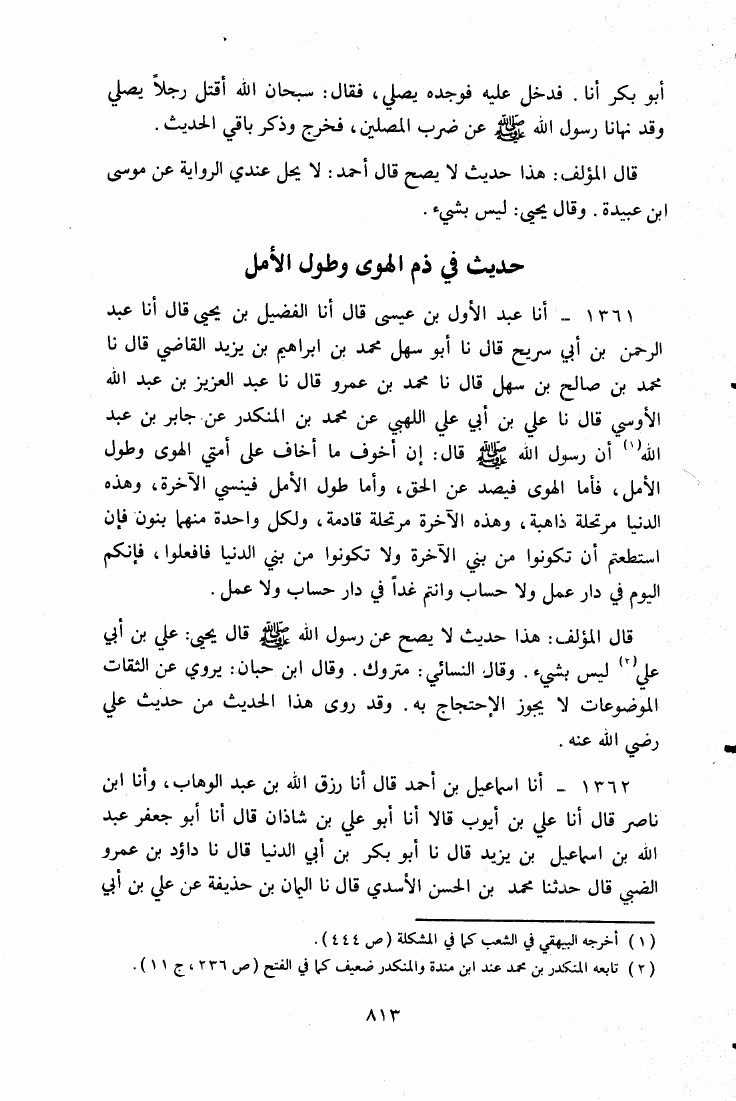 أبو بكر أنا . فدخل عليه فوجده يصلي ، فقال : سبحان الله أقتل رجلاً يصلي
وقد نهانا رسول الله ﷺ عن ضرب المصلين ، فخرج وذكر باقي الحديث .
قال المؤلف : هذا حديث لا يصح قال أحمد : لا يحل عندي الرواية عن موسى
ابن عبيدة . وقال يحيى : ليس بشيء .
حديث في ذم الهوى وطول الأمل
١٣٦١ – أنا عبد الأول بن عيسى قال أنا الفضيل بن يحيى قال أنا عبد
الرحمن بن أبي سريح قال نا أبو سهل محمد بن ابراهيم بن يزيد القاضي قال نا
محمد بن صالح بن سهل قال نا محمد بن عمرو قال نا عبد العزيز بن عبد الله
الأوسي قال نا علي بن أبي علي اللهبي عن محمد بن المنكدر عن جابر بن عبد
الله(١) أن رسول الله ﷺ قال : إن أخوف ما أخاف على أمتي الهوى وطول
الأمل ، فأما الهوى فيصد عن الحق ، وأما طول الأمل فينسي الآخرة ، وهذه
الدنيا مرتحلة ذاهبة ، وهذه الآخرة مرتحلة قادمة ، ولكل واحدة منهما بنون فإن
استطعتم أن تكونوا من بني الآخرة ولا تكونوا من بني الدنيا فافعلوا ، فإنكم
اليوم في دار عمل ولا حساب وانتم غداً في دار حساب ولا عمل .
قال المؤلف : هذا حديث لا يصح عن رسول الله ﷺ قال يحيى : علي بن أبي
علي(٢) ليس بشيء . وقال النسائي : متروك . وقال ابن حبان : يروي عن الثقات
الموضوعات لا يجوز الإحتجاج به . وقد روى هذا الحديث من حديث علي
رضي الله عنه .
١٣٦٢ – أنا اسماعيل بن أحمد قال أنا رزق الله بن عبد الوهاب ، وأنا ابن
ناصر قال أنا علي بن أيوب قالا أنا أبو علي بن شاذان قال أنا أبو جعفر عبد
الله بن اسماعيل بن يزيد قال نا أبو بكر بن أبي الدنيا قال نا داؤد بن عمرو
الضبي قال حدثنا محمد بن الحسن الأسدي قال نا اليمان بن حذيفة عن علي بن أبي
(١) أخرجه البيهقي في الشعب كما في المشكلة (ص ٤٤٤) .
(٢) تابعه المنكدر بن محمد عند ابن مندة والمنكدر ضعيف كما في الفتح (ص ٢٣٦ ، ج ١١) .
٨١٣